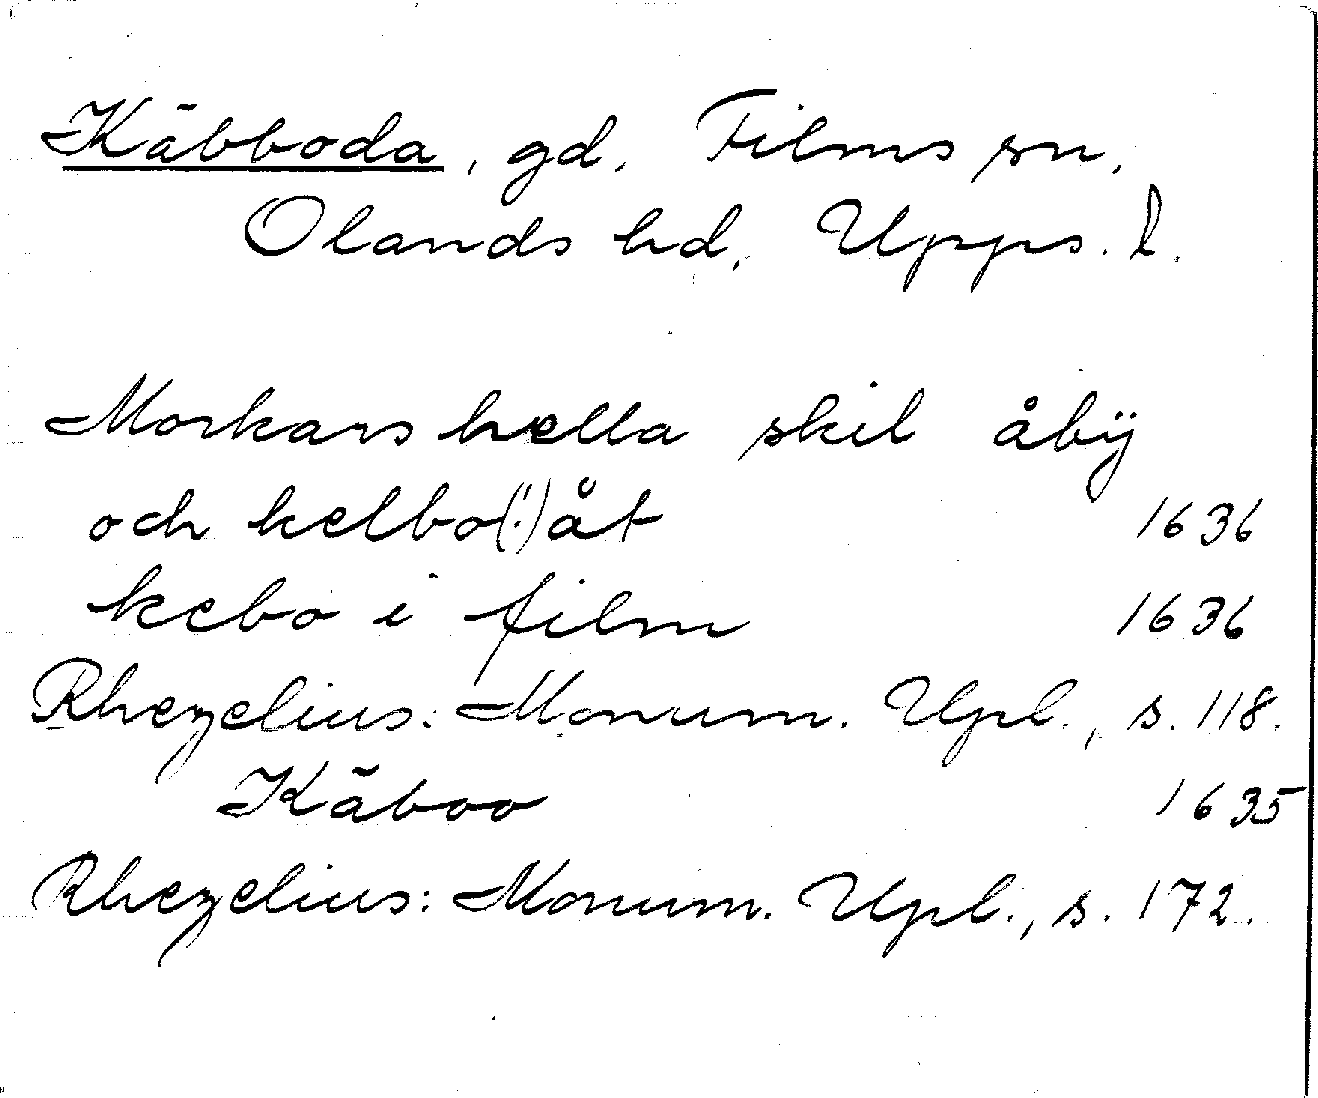 Käbboda, gd, Films sn,
Olands hd, Upps. l.
Morkars hella skil åbÿ
och kelbo(!) åt 1636
kebo i film 1636
Rhezelius: Monum. Upl., s. 118.
Käboo 1635
Rhezelius: Monum. Upl., s. 172.